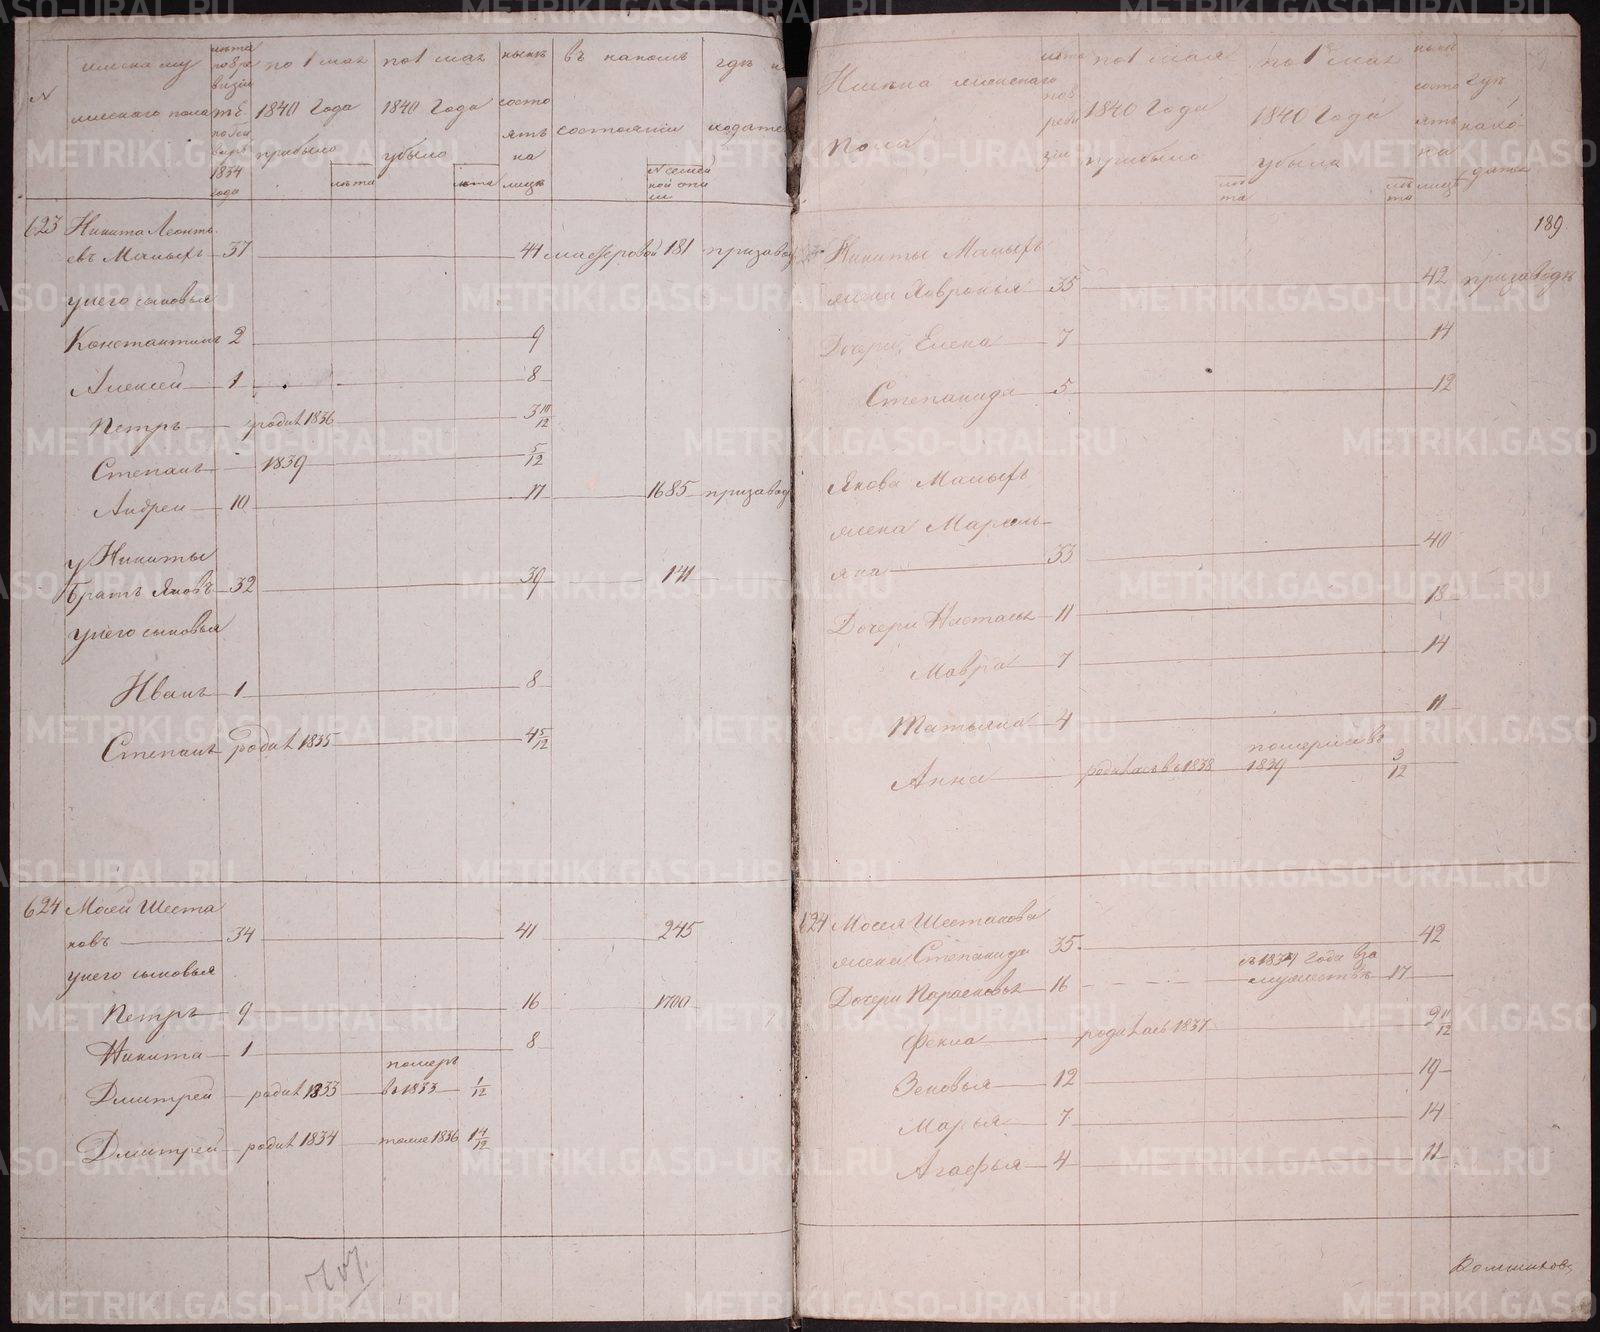 №
имена му
жескаго пола
лѣта
по ре
визіи
1834
года
по 1 мая
1840 года
прибыло
лѣта
по 1 мая
1840 года
убыло
лѣта
нынѣ
состо
ятъ
на
лицѣ
въ какомъ
состояніи
№ семей
ной спи
гдѣ н
ходятся
623 Никита Леонть
евъ Малыхъ 37 44 мастеровой 181 при завод
у него сыновья
Константинъ 2 9
Алексей 1 8
Петръ родил 1836 3 10/12
Степанъ 1839 5/12
Андрей 10 17 1685 при завод
у Никиты
братъ Яковъ 32 39 141
у него сыновья
Иванъ 1 8
Степанъ родил 1835 4 5/12
624 Мосей Шеста
ковъ 34 41 245
у него сыновья
Петръ 9 16 1700
Никита 1 8
Дмитрей родил 1833 померъ
въ 1833 1/12
Дмитрей родил 1834 тоже 1836 1 4/12
Имена женскаго
пола
лѣта
по
реви
зіи
по 1 мая
1840 года
прибыло
лѣ
та
по 1 мая
1840 года
убыло
лѣ
та
нынѣ
состо
ятъ
на
лицѣ
гдѣ
нахо-
дятся
189
Никиты Малыхъ
жена Хавронья 35 42 при заводѣ
Дочери Елена 7 14
Степанида 5 12
Якова Малыхъ
жена Маремь-
яна 33 40
Дочери Настасья 11 18
Мавра 7 14
Татьяна 4 11
Анна родилась в 1838 померла въ
1839 3/12
624 Мосея Шестакова
жена Степанида 35 42
Дочери Парасковья 16 съ 1834 года в за
мужествѣ 17
Фекла родилась 1837 2 11/12
Зеновья 12 19
Марья 7 14
Агафья 4 11
METRIKI.GASO-URAL.RU